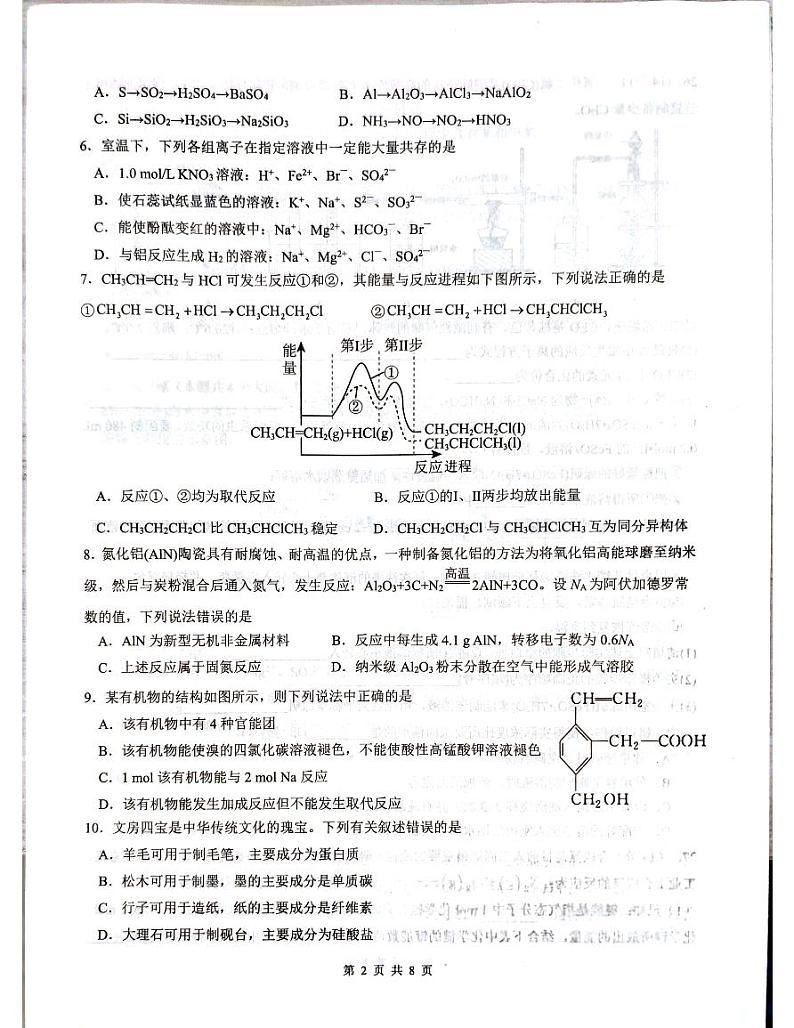 A．S→SO₂→H₂SO₄→BaSO₄ B．Al→Al₂O₃→AlCl₃→NaAlO₂
C．Si→SiO₂→H₂SiO₃→Na₂SiO₃ D．NH₃→NO→NO₂→HNO₃
6、室温下，下列各组离子在指定溶液中一定能大量共存的是
A．1.0 mol/L KNO₃ 溶液：H⁺、Fe²⁺、Br⁻、SO₄²⁻
B．使石蕊试纸显蓝色的溶液：K⁺、Na⁺、S²⁻、SO₃²⁻
C．能使酚酞变红的溶液中：Na⁺、Mg²⁺、HCO₃⁻、Br⁻
D．与铝反应生成 H₂ 的溶液：Na⁺、Mg²⁺、Cl⁻、SO₄²⁻
7、CH₃CH=CH₂ 与 HCl 可发生反应①和②，其能量与反应进程如下图所示，下列说法正确的是
①CH₃CH＝CH₂+HCl→CH₃CH₂CH₂Cl ②CH₃CH＝CH₂+HCl→CH₃CHClCH₃
能量
第Ⅰ步 第Ⅱ步
①
②
CH₃CH=CH₂(g)+HCl(g)
CH₃CH₂CH₂Cl(l)
CH₃CHClCH₃(l)
反应进程
A．反应①、②均为取代反应 B．反应①的Ⅰ、Ⅱ两步均放出能量
C．CH₃CH₂CH₂Cl 比 CH₃CHClCH₃ 稳定 D．CH₃CH₂CH₂Cl 与 CH₃CHClCH₃ 互为同分异构体
8、氮化铝(AlN)陶瓷具有耐腐蚀、耐高温的优点，一种制备氮化铝的方法为将氧化铝高能球磨至纳米
级，然后与炭粉混合后通入氮气，发生反应：Al₂O₃+3C+N₂ 高温 2AlN+3CO。设 NA 为阿伏加德罗常
数的值，下列说法错误的是
A．AlN 为新型无机非金属材料 B．反应中每生成 4.1 g AlN，转移电子数为 0.6NA
C．上述反应属于固氮反应 D．纳米级 Al₂O₃ 粉末分散在空气中能形成气溶胶
9．某有机物的结构如图所示，则下列说法中正确的是
CH=CH₂
A．该有机物中有 4 种官能团
CH₂—COOH
B．该有机物能使溴的四氯化碳溶液褪色，不能使酸性高锰酸钾溶液褪色
C．1 mol 该有机物能与 2 mol Na 反应
D．该有机物能发生加成反应但不能发生取代反应
CH₂OH
10．文房四宝是中华传统文化的瑰宝。下列有关叙述错误的是
A．羊毛可用于制毛笔，主要成分为蛋白质
B．松木可用于制墨，墨的主要成分是单质碳
C．行子可用于造纸，纸的主要成分是纤维素
D．大理石可用于制砚台，主要成分为硅酸盐
第 2 页 共 8 页